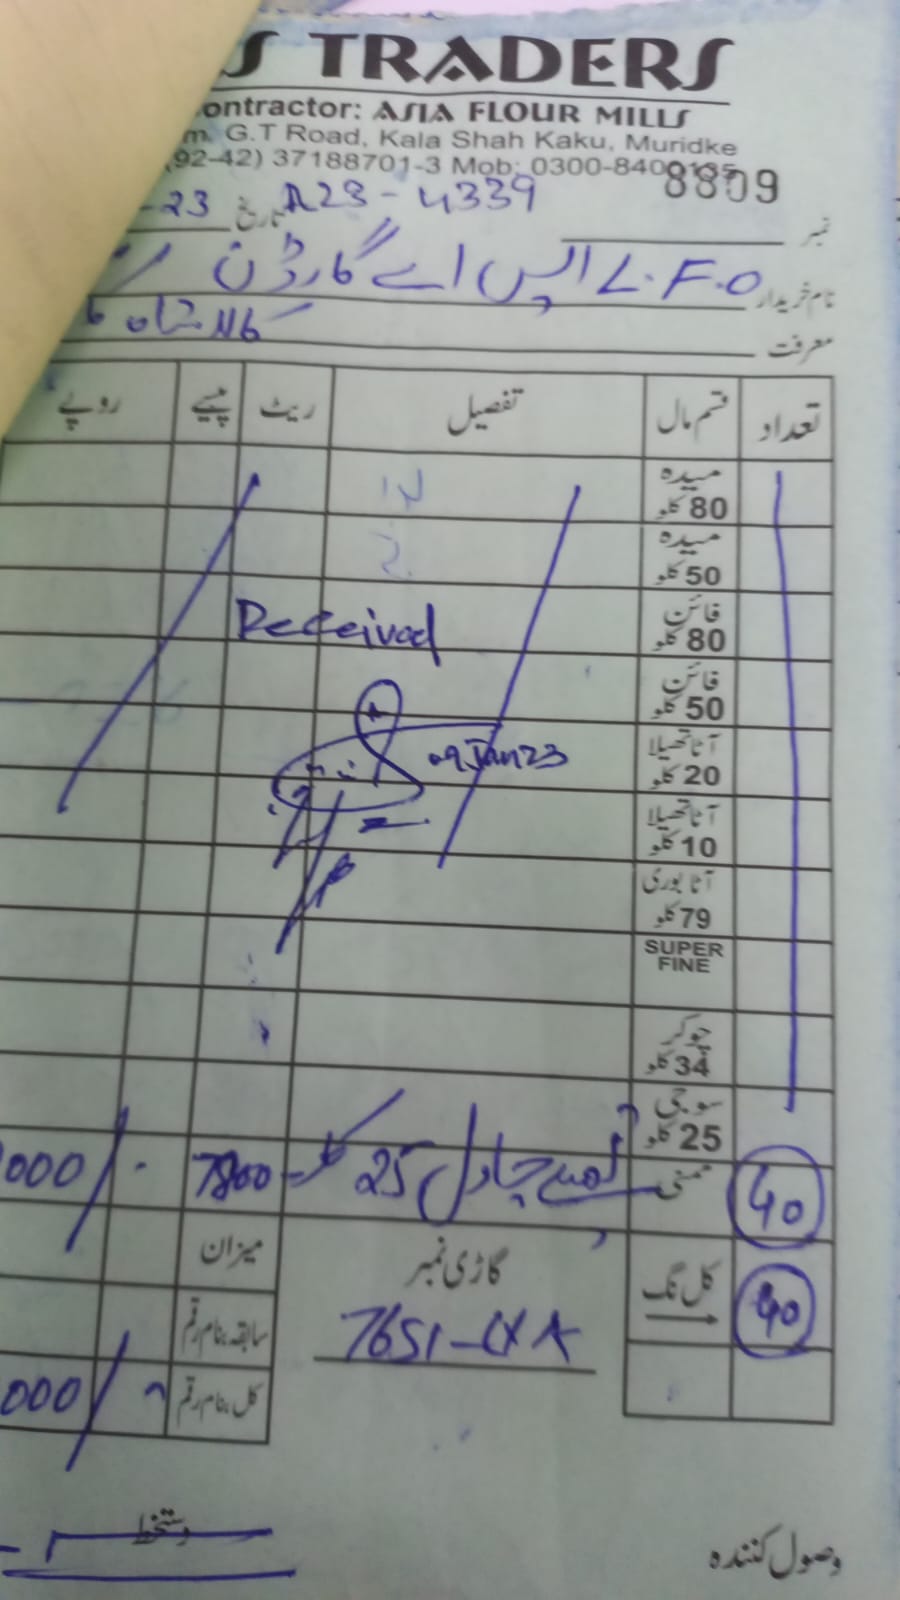 S TRADERS
ontractor: ASIA FLOUR MILLS
m. G.T Road, Kala Shah Kaku, Muridke
(92-42) 37188701-3 Mob: 0300-840
نمبر 8809
تاریخ -23 A23-4339
نام خریدار L.F.O ایس اے گارڈن
معرفت کالا شاہ
تعداد قسم مال تفصیل ریٹ پیسے روپے
میدہ 80 کلو
میدہ 50 کلو
فائن 80 کلو
Received
فائن 50 کلو
آٹا تھیلا 20 کلو
09 Jan 23
آٹا تھیلا 10 کلو
آٹا بوری 79 کلو
SUPER FINE
چوکر 34 کلو
سوجی 25 کلو
40 چاول 25 7800 000/-
میزان
کل نگ 40
گاڑی نمبر
7651-LXA
سابقہ بنام رقم
کل بنام رقم 000/
دستخط
وصول کنندہ